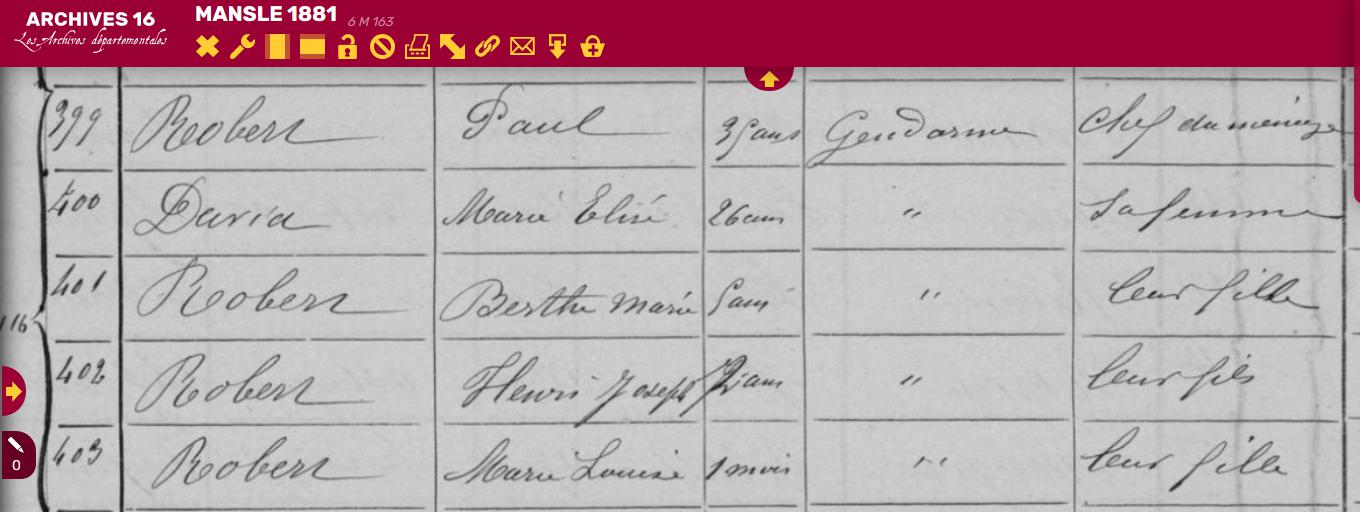 ARCHIVES 16
Les Archives départementales
MANSLE 1881 6 M 163
399 Robert Paul 35 ans Gendarme Chef du ménage
400 David Marie Elise 26 ans " Sa femme
401 Robert Berthe Marie 5 ans " leur fille
116
402 Robert Henri Joseph 2 ans " leur fils
403 Robert Marie Louise 1 mois " leur fille
0